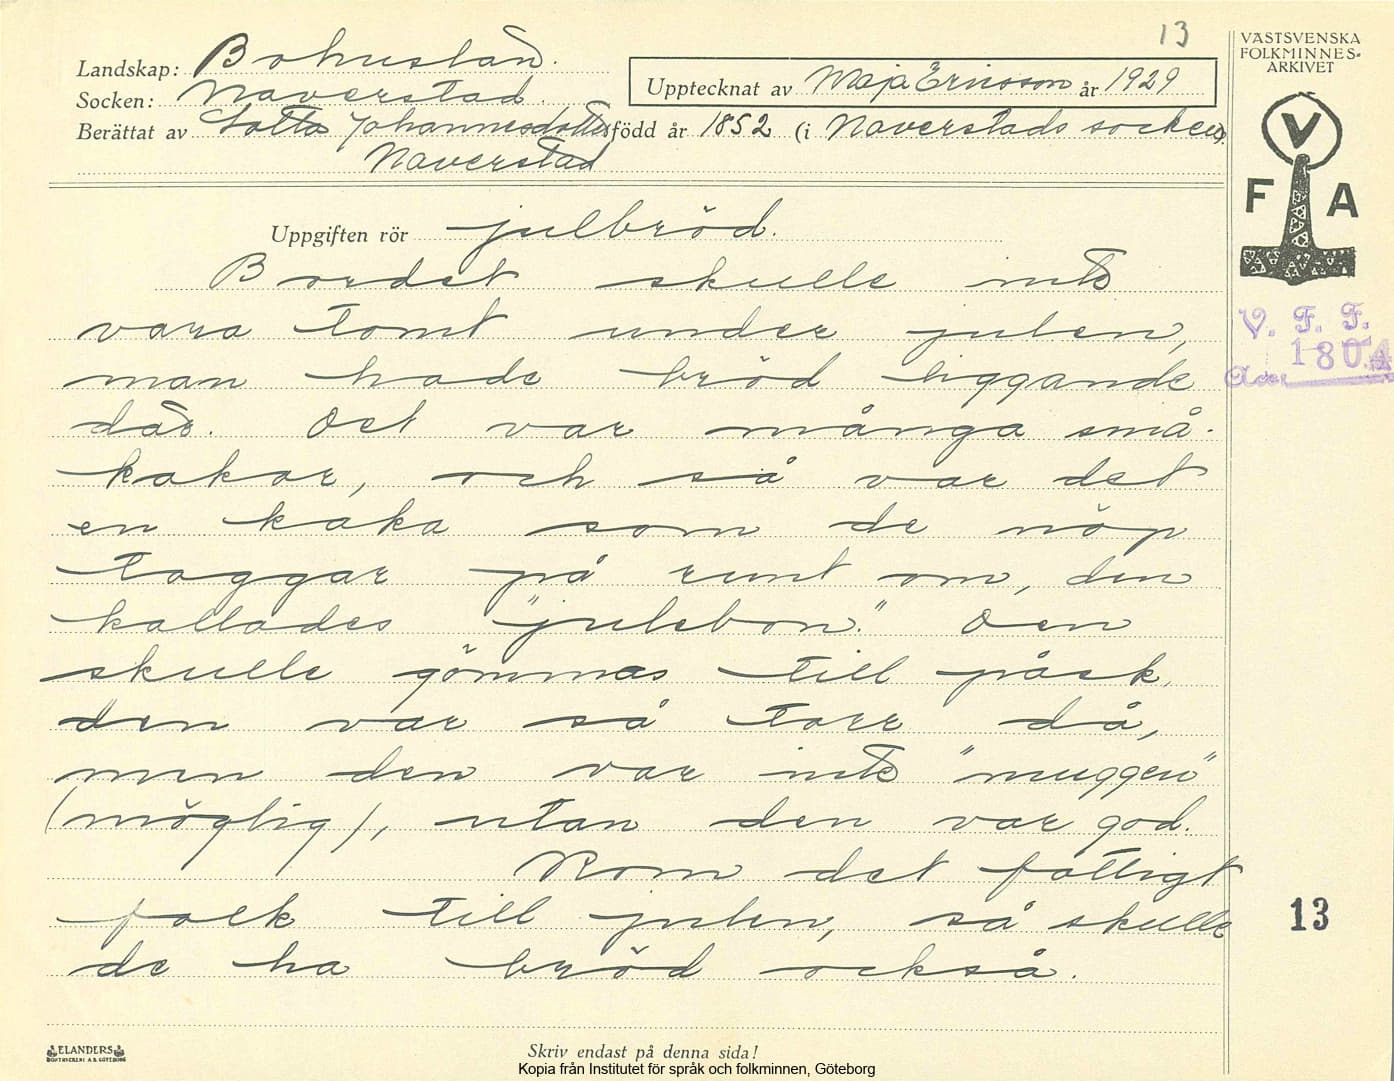 13
VÄSTSVENSKA
FOLKMINNES-
ARKIVET
Landskap: Bohuslän.
Upptecknat av Maja Ericsson år 1929
Socken: Naverstad.
Berättat av Lotta Johannesdotter född år 1852 (i Naverstads socken).
Naverstad
V
F A
Uppgiften rör julbröd.
Bordet skulle inte
vara tomt under julen,
man hade bröd liggande
där. Det var många små-
kakor, och så var det
en kaka som de nöp
taggar på runt om, den
kallades "julebon." Den
skulle gömmas till påsk,
den var så torr då,
men den var inte "muggen"
(möglig), utan den var god.
Kom det fattigt
folk till julen, så skulle
de ha bröd också.
V. F. F.
1804
Acc.
13
ELANDERS
BOKTRYCKERI A.B. GÖTEBORG
Skriv endast på denna sida!
Kopia från Institutet för språk och folkminnen, Göteborg